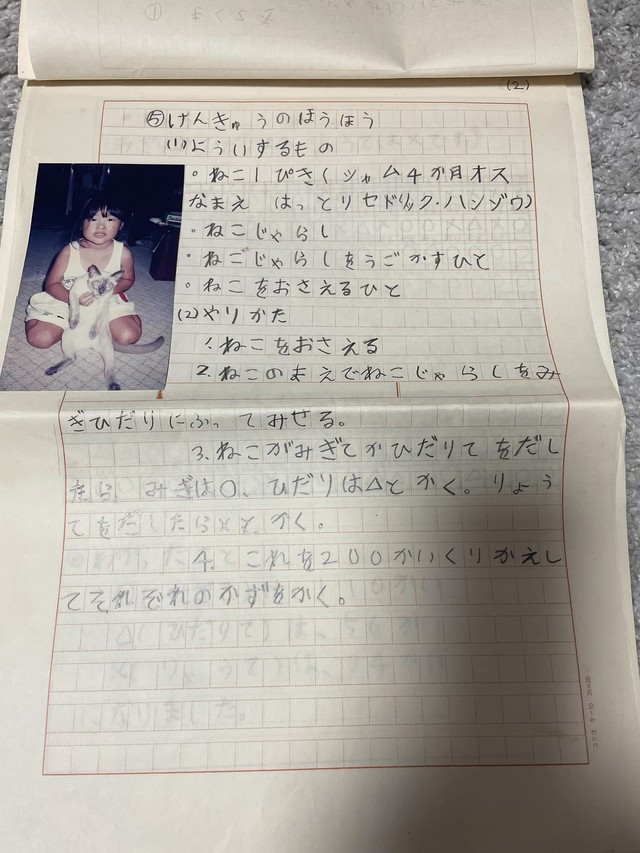 (2)
⑤げんきゅうのほうほう
(1)よういするもの
。ねこ1ぴき(シャム4か月オス
なまえ はっとりセドリック・ハンゾウ)
。ねこじゃらし
。ねこじゃらしをうごかすひと
。ねこをおさえるひと
(2)やりかた
1.ねこをおさえる
2.ねこのまえでねこじゃらしをみ
ぎひだりにふってみせる。
3.ねこがみぎてかひだりてをだし
たら みぎは○、ひだりは△とかく。りょう
てをだしたら×とかく。
4.これを200かいくりかえし
てそれぞれのかずをかく。